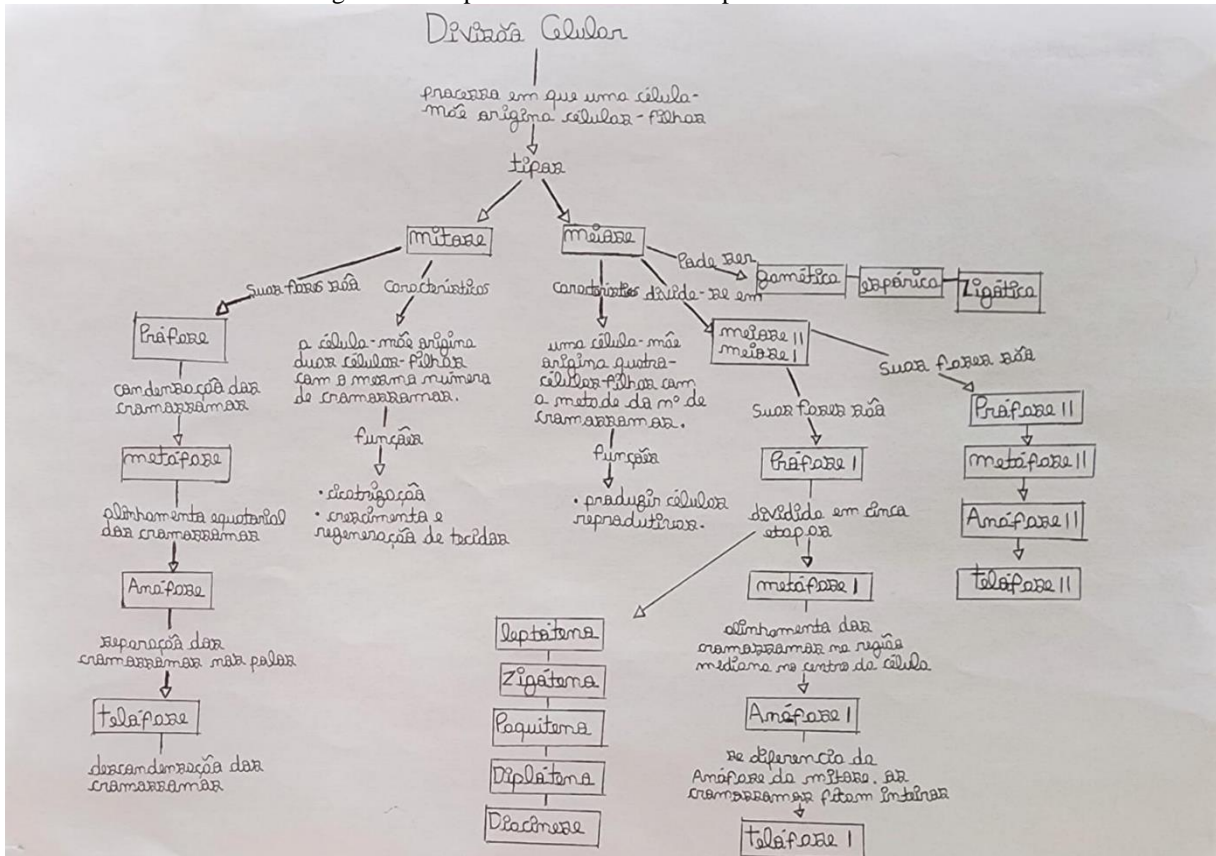 Divisão Celular
processo em que uma célula-
mãe origina células-filhas
tipos
mitose
meiose
Pode ser
gamética
espórica
Zigótica
Suas fases são
Características
Características
divide-se em
Prófase
condensação dos
cromossomos
metáfase
alinhamento equatorial
dos cromossomos
Anáfase
separação dos
cromossomos nos polos
telófase
descondensação dos
cromossomos
a célula-mãe origina
duas células-filhas
com o mesmo número
de cromossomos.
funções
• cicatrização
• crescimento e
regeneração de tecidos
uma célula-mãe
origina quatro
células-filhas com
a metade do nº de
cromossomos.
funções
• produzir células
reprodutivas.
meiose II
meiose I
Suas fases são
Prófase I
dividido em cinco
etapas
leptóteno
Zigóteno
Paquiteno
Diplóteno
Diacinese
metáfase I
alinhamento dos
cromossomos na região
mediana no centro da célula
Anáfase I
se diferencia da
Anáfase da mitose. os
cromossomos fitam inteiros
telófase I
Suas fases são
Prófase II
metáfase II
Anáfase II
telófase II